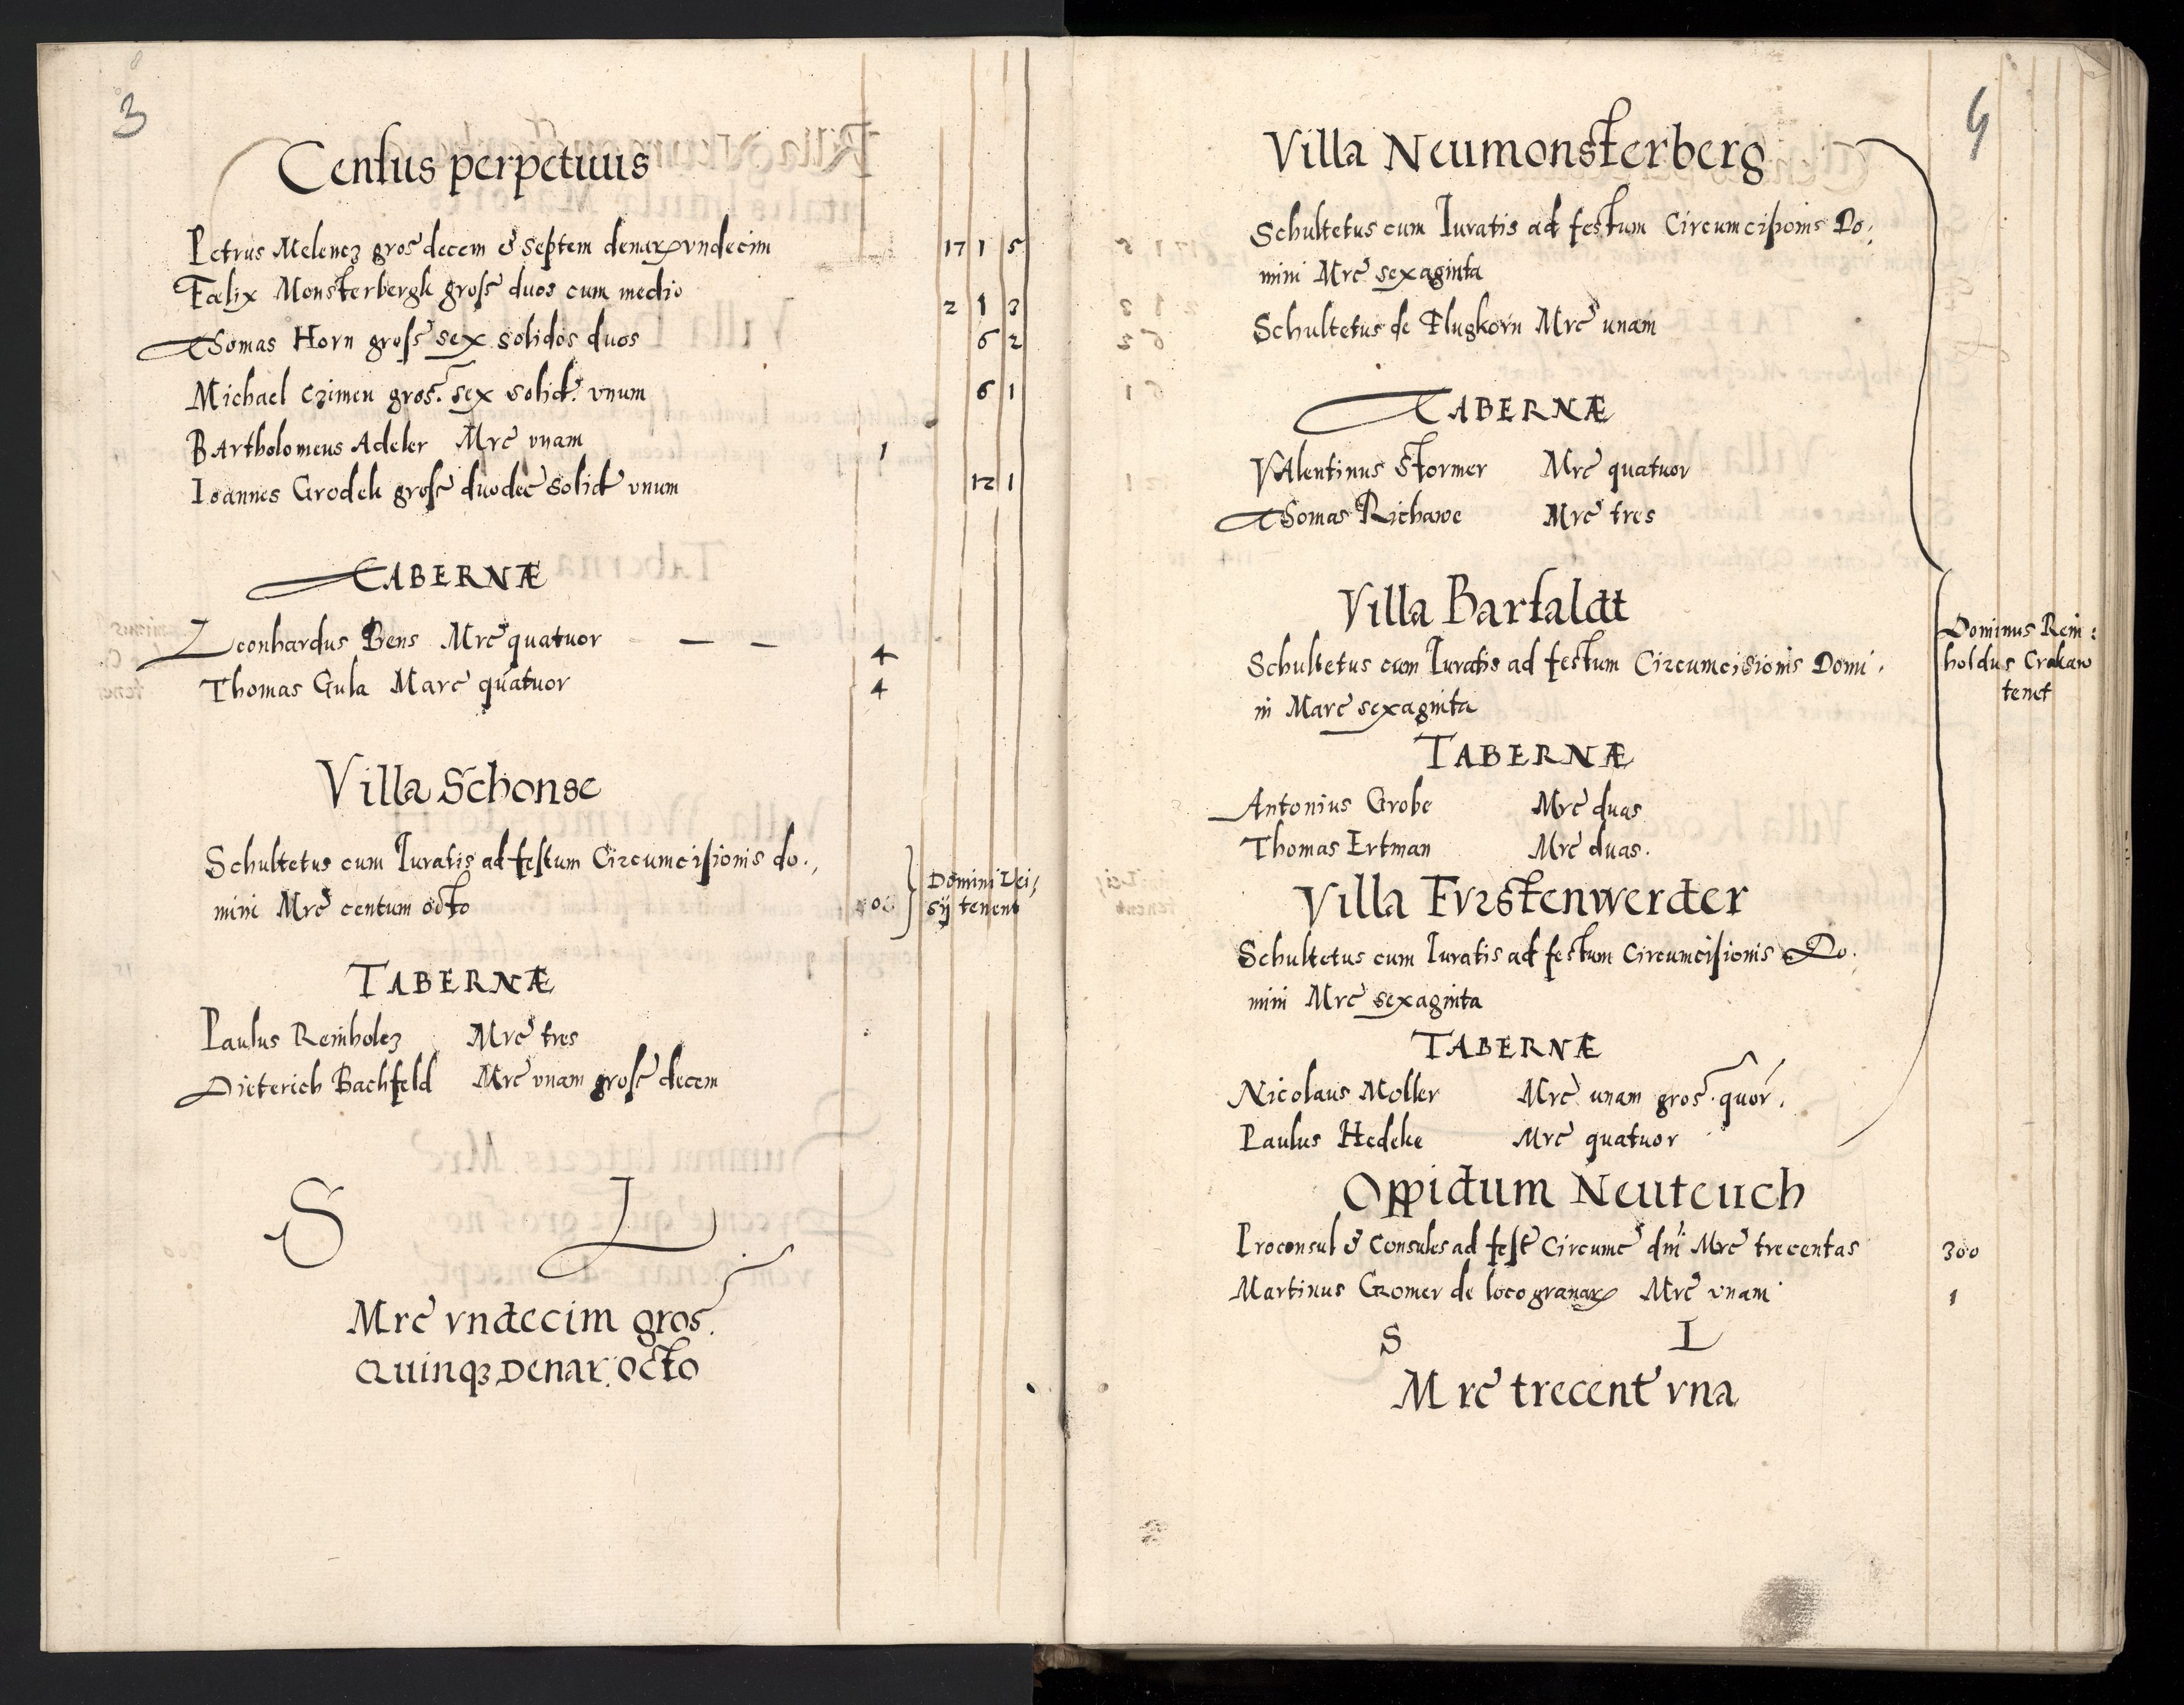 3
Census perpetuus
Petrus Melencz gros decem & septem denar vndecim 17 1 5
Fœlix Monsterbergk gross duos cum medio 2 1 3
Thomas Horn gross sex solidos duos 6 2
Michael Czimen gros. sex solid. vnum 6 1
Bartholomeus Adeler Mrc vnam 1
Ioannes Grodek gross duodec solid vnum 12 1
TABERNÆ
Leonhardus Bens Mrc quatuor — — 4
Thomas Gula Marc quatuor 4
Villa Schonse
Schultetus cum Iuratis ad festum Circumcisionis do.,
mini Mrc centum octo
Domini Lei,
sij tenent
TABERNÆ
Paulus Reinholcz Mrc tres
Dieterich Bachfeld Mrc vnam gross decem
S L
Mrc vndecim gros.
Quinqз Denar. octo
4
Villa Neumonsterberg
Schultetus cum Iuratis ad festum Circumcisionis Do,
mini Mrc sexaginta
Schultetus de Flugkorn Mrc unam
TABERNÆ
Valentinus Stormer Mrc quatuor
Thomas Richawe Mrc tres
Villa Barfaldt
Schultetus cum Iuratis ad festum Circumcisionis Domi,
ni Marc sexaginta
Dominus Rein:
holdus Crakaw
tenet
TABERNÆ
Antonius Grobe Mrc duas
Thomas Ertman Mrc duas.
Villa Fvrstenwerder
Schultetus cum Iuratis ad festum Circumcisionis Do.
mini Mrc sexaginta
TABERNÆ
Nicolaus Moller Mrc unam gros. quor.
Paulus Hedeke Mrc quatuor
Oppidum Neuteuch
Proconsul & Consules ad fest Circumc dni Mrc trecentas 300
Martinus Cromer de loco granar Mrc vnam 1
S L
Mrc trecent vna